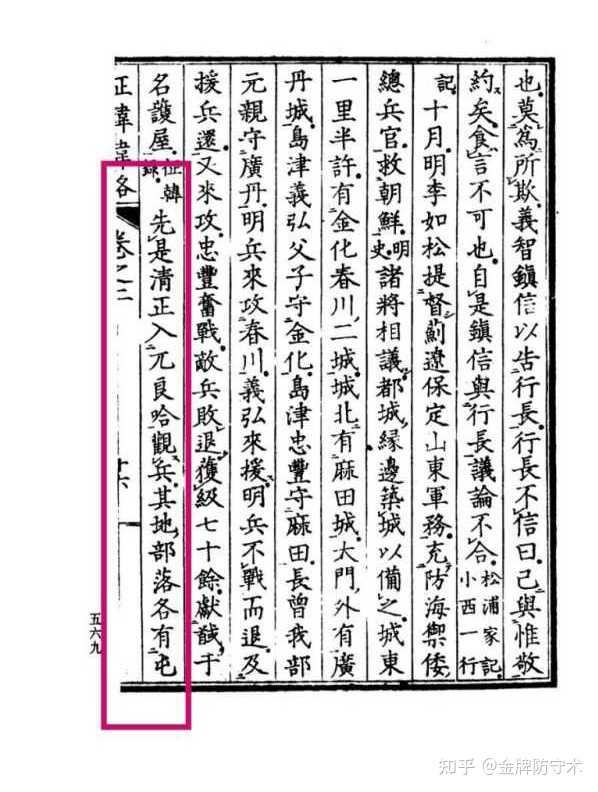 也莫爲所欺義智鎮信以告行長行長不信曰己與惟敬
約矣食言不可也自是鎮信與行長議論不合松浦家記小西一行
記十月明李如松提督薊遼保定山東軍務充防海禦倭
總兵官救朝鮮明史諸將相議都城緣邊築城以備之城東
一里半許有金化春川二城城北有麻田城大門外有廣
丹城島津義弘父子守金化島津忠豐守麻田長曾我部
元親守廣丹明兵來攻春川義弘來援明兵不戰而退及
援兵還又來攻忠豐奮戰敵兵敗退獲級七十餘獻馘于
名護屋征韓錄先是清正入兀良哈觀兵其地部落各有屯
征韓偉略 卷之二 十六
五六九
知乎 @金牌防守术